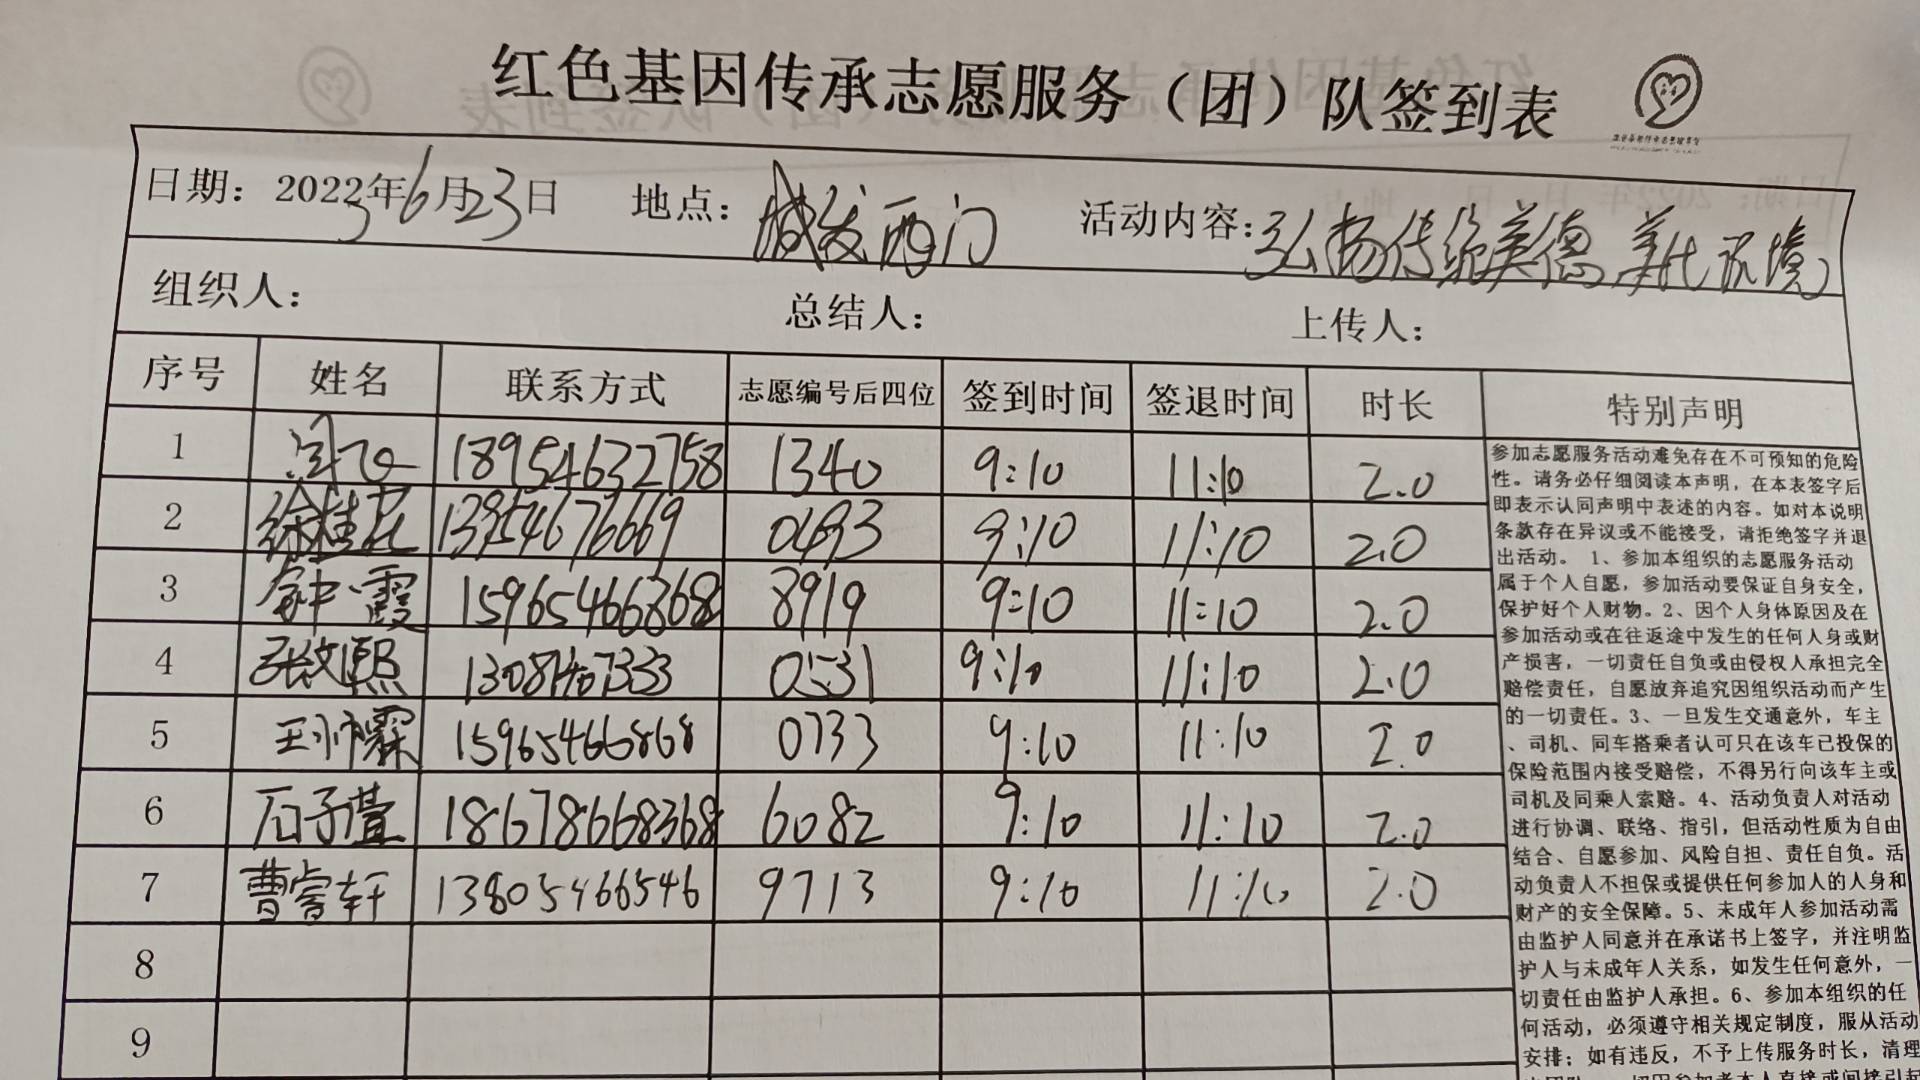 红色基因传承志愿服务（团）队签到表
日期：2023年6月23日 地点：城发西门 活动内容：弘扬传统美德 美化环境
组织人： 总结人： 上传人：
序号 姓名 联系方式 志愿编号后四位 签到时间 签退时间 时长 特别声明
1 18954632758 1340 9:10 11:10 2.0
2 徐桂花 13954676669 0493 9:10 11:10 2.0
3 钟霞 15965466868 8919 9:10 11:10 2.0
4 张文熙 0531 9:10 11:10 2.0
5 王帅霖 15965466868 0733 9:10 11:10 2.0
6 石子萱 18678668368 6082 9:10 11:10 2.0
7 曹睿轩 13805466546 9713 9:10 11:10 2.0
8
9
参加志愿服务活动难免存在不可预知的危险
性。请务必仔细阅读本声明，在本表签字后
即表示认同声明中表述的内容。如对本说明
条款存在异议或不能接受，请拒绝签字并退
出活动。 1、参加本组织的志愿服务活动
属于个人自愿，参加活动要保证自身安全，
保护好个人财物。2、因个人身体原因及在
参加活动或在往返途中发生的任何人身或财
产损害，一切责任自负或由侵权人承担完全
赔偿责任，自愿放弃追究因组织活动而产生
的一切责任。3、一旦发生交通意外，车主
、司机、同车搭乘者认可只在该车已投保的
保险范围内接受赔偿，不得另行向该车主或
司机及同乘人索赔。4、活动负责人对活动
进行协调、联络、指引，但活动性质为自由
结合、自愿参加、风险自担、责任自负。活
动负责人不担保或提供任何参加人的人身和
财产的安全保障。5、未成年人参加活动需
由监护人同意并在承诺书上签字，并注明监
护人与未成年人关系，如发生任何意外，一
切责任由监护人承担。6、参加本组织的任
何活动，必须遵守相关规定制度，服从活动
安排；如有违反，不予上传服务时长，清理